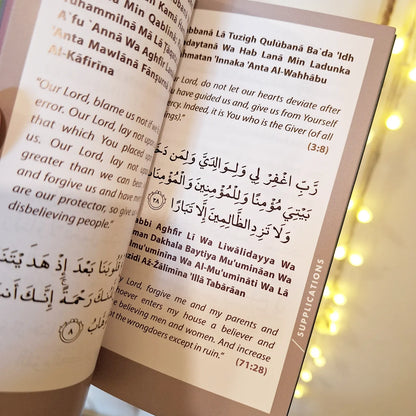 Kamā
Min Qablinā
Tuhammilnā Mā Lā
A`fu `Annā Wa Aghfir
'Anta Mawlānā Fānşurnā
Al-Kāfirīna
"Our Lord, blame us not if we
error. Our Lord, lay not
that which You placed
us. Our Lord, lay not
greater than we can
and forgive us and have
are our protector, so give
disbelieving people."
قُلُوبَنَا بَعْدَ إِذْ هَدَيْتَنَا
رَحْمَةً إِنَّكَ أَنتَ
٨
Lā Tuzigh Qulūbanā Ba`da 'Idh
Hadaytanā Wa Hab Lanā Min Ladunka
'Innaka 'Anta Al-Wahhābu
Lord, do not let our hearts deviate after
have guided us and, give us from Yourself
mercy. Indeed, it is You who is the Giver (of all
things)."
(3:8)
رَّبِّ اغْفِرْ لِي وَلِوَالِدَيَّ وَلِمَن دَخَلَ
بَيْتِيَ مُؤْمِنًا وَلِلْمُؤْمِنِينَ وَالْمُؤْمِنَاتِ
وَلَا تَزِدِ الظَّالِمِينَ إِلَّا تَبَارًا ٢٨
Rabbi Aghfir Lī Wa Liwālidayya Wa
Liman Dakhala Baytiya Mu'umināan Wa
Lilmu'uminīna Wa Al-Mu'umināti Wa Lā
Tazidi Až-Žālimīna 'Illā Tabārāan
Lord, forgive me and my parents and
whoever enters my house a believer and
believing men and women. And increase
not the wrongdoers except in ruin."
(71:28)
SUPPLICATIONS